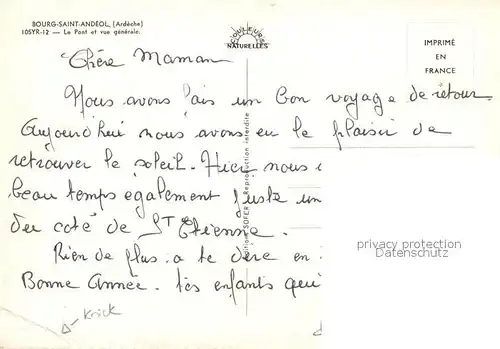 BOURG-SAINT-ANDÉOL (Ardèche)
105YR-12 — Le Pont et vue générale.
COULEURS NATURELLES
IMPRIMÉ
EN
FRANCE
Chère Maman
Nous avons fais un bon voyage de retour
Aujourd'hui nous avons eu le plaisir de
retrouver le soleil. Hier nous
beau temps également juste un
du coté de St Etienne.
Rien de plus à te dire en
Bonne Année. tes enfants qui
Reproduction interdite
SOFER
privacy protection
Datenschutz
Krick